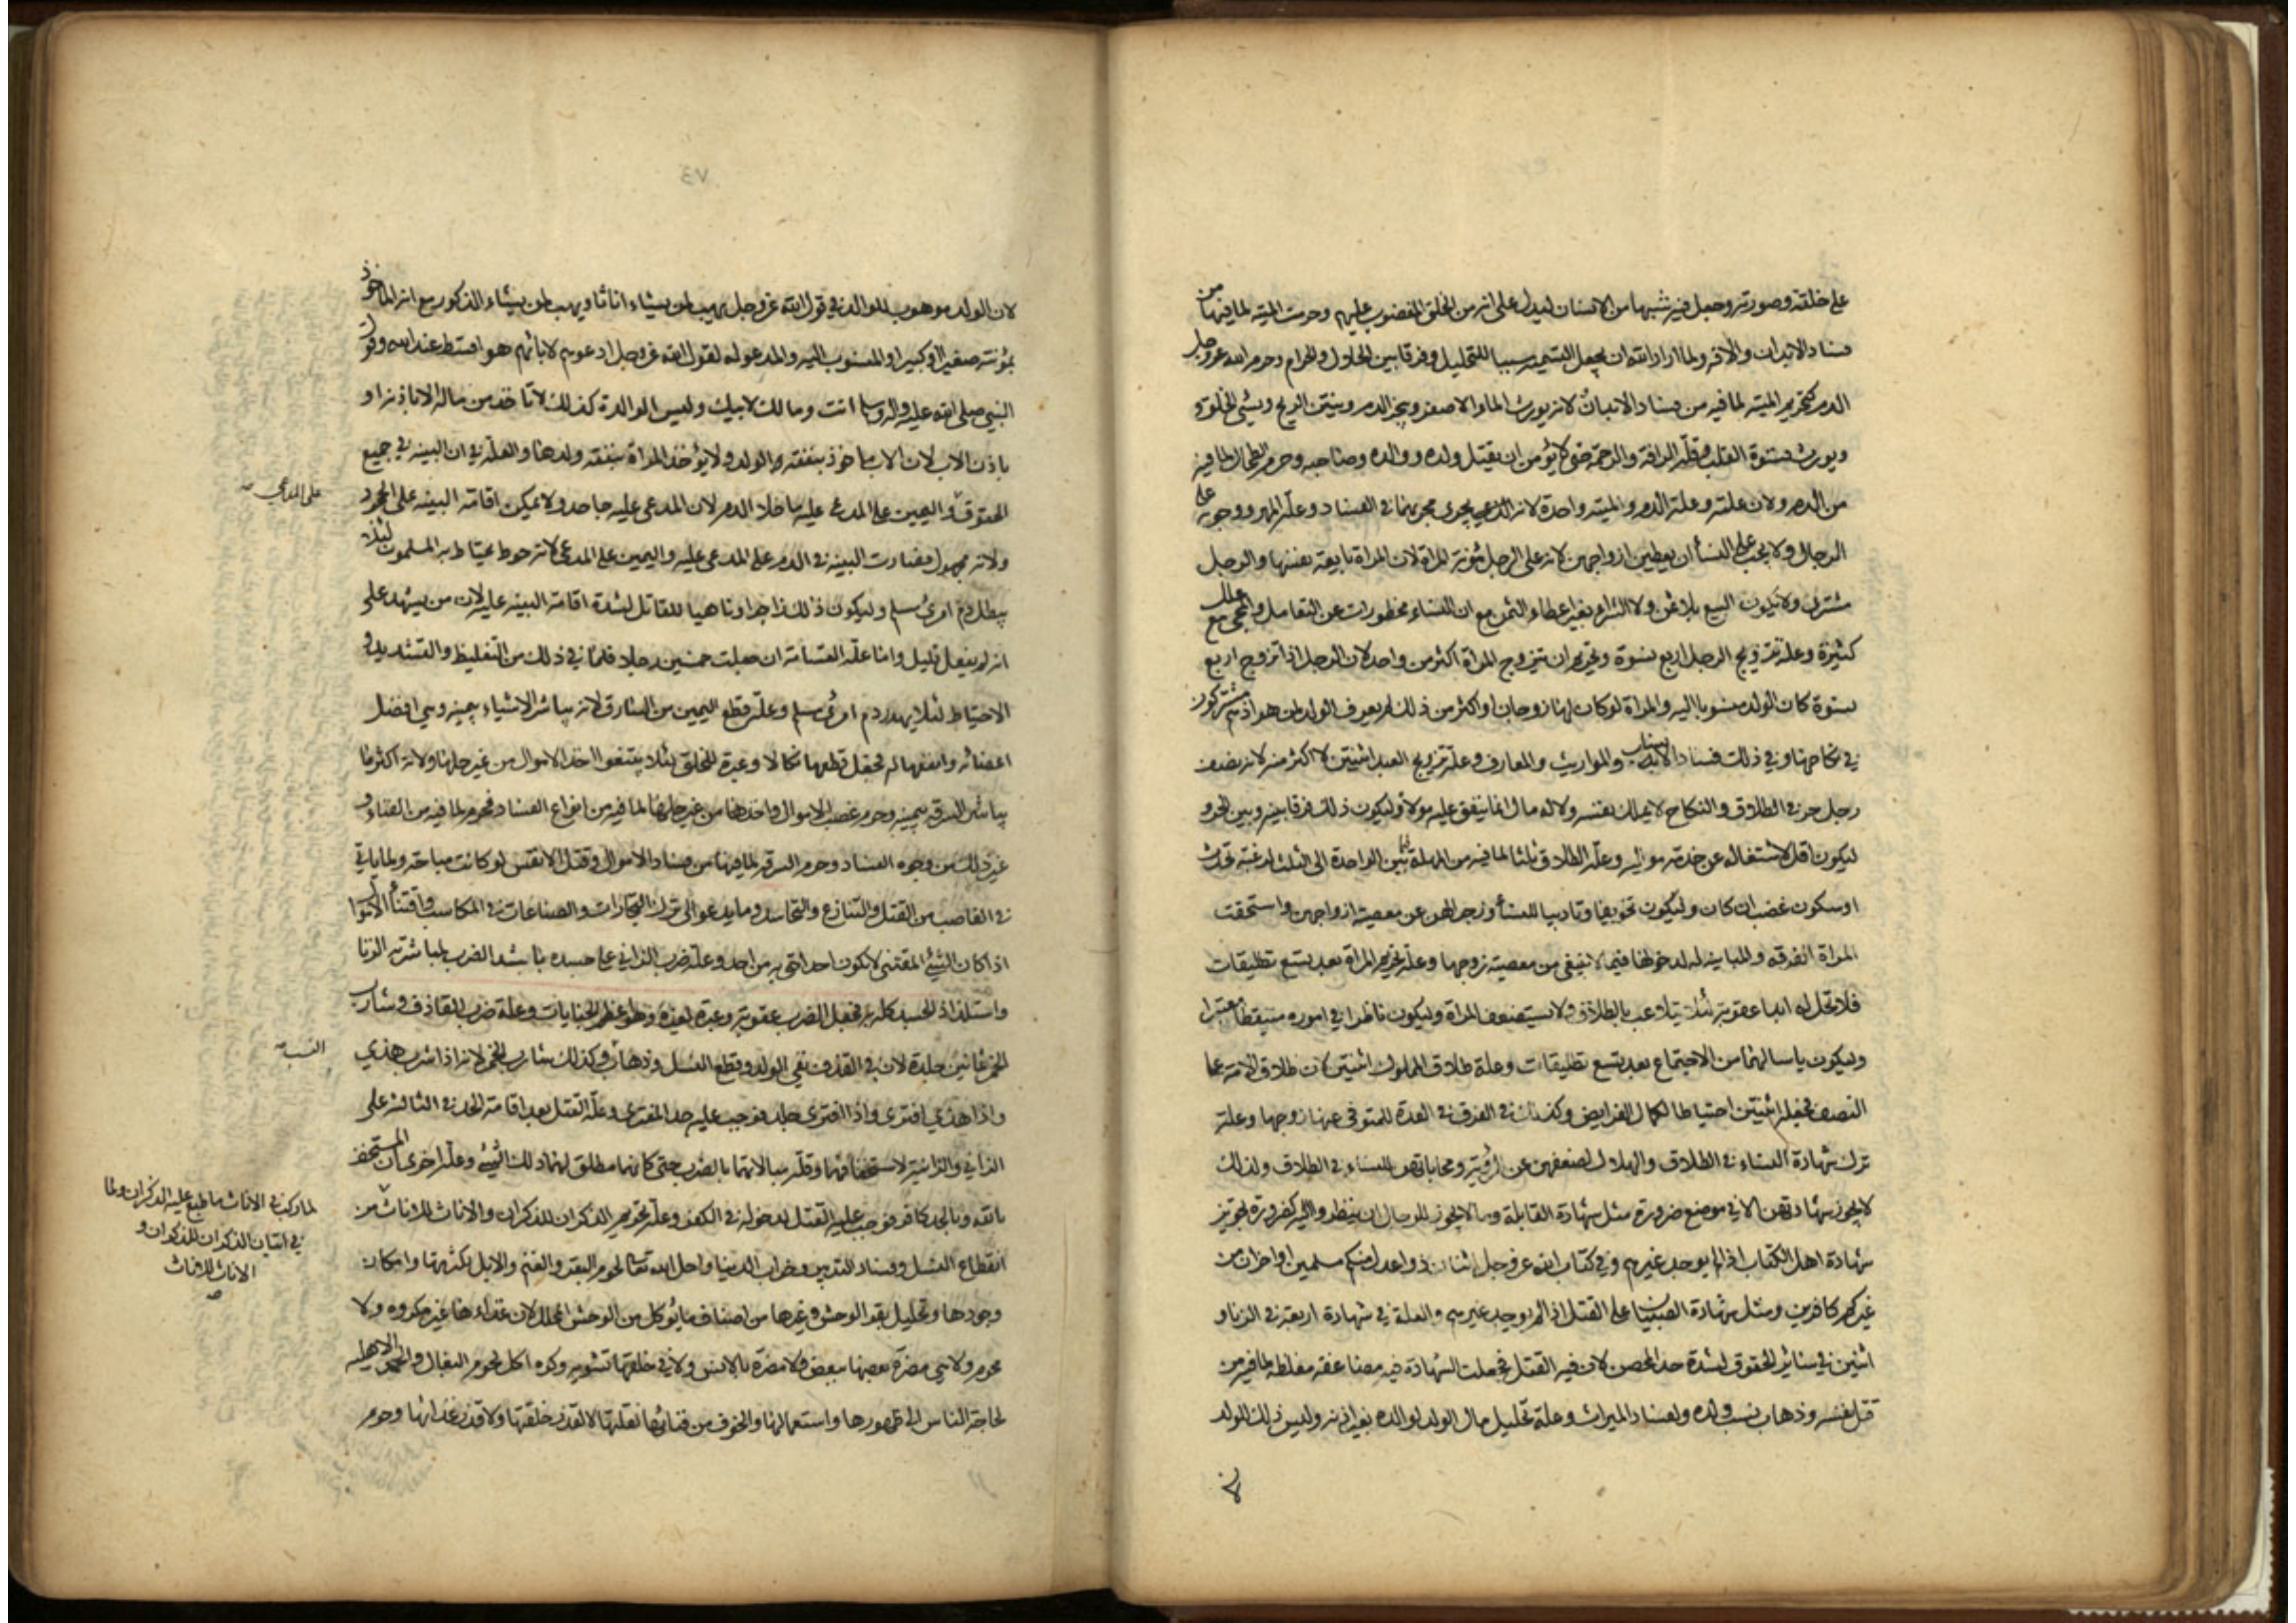 على خلقته وصورته وجعل فيه شبها من الانسان ليدل على انه من الخلق المغضوب عليهم وحرمت الميتة لما فيها من
فساد الابدان والافة ولما اراد الله ان يجعل التسمية سببا للتحليل وفرقا بين الحلال والحرام وحرم الله عز وجل
الدم كتحريم الميتة لما فيه من فساد الابدان لانه يورث الماء الاصفر ويبخر الفم وينتن الريح ويسئ الخلق و
ويورث قسوة القلب وقلة الرافة والرحمة حتى لا يؤمن ان يقتل ولده ووالده وصاحبه وحرم الطحال لما فيه
من الدم ولان علته وعلة الدم والميتة واحدة لانه يجري مجريهما في الفساد وعلة المهر ووجوبه على
الرجال ولا يجب على النسأ ان يعطين ازواجهن لانه على الرجل مؤنة المراة لان المراة بايعة نفسها والرجل
مشترى ولا يكون البيع بلا ثمن ولا الشراء بغير اعطاء الثمن مع ان النساء محظورات عن التعامل والمجئ مع علل
كثيرة وعلة تزويج الرجل اربع نسوة وتحريم ان تتزوج المراة اكثر من واحد لان الرجل اذا تزوج اربع
نسوة كان الولد منسوبا اليه والمراة لو كان لها زوجان او اكثر من ذلك لم يعرف الولد لمن هو اذ هم مشتركون
في نكاحها وفي ذلك فساد الانساب والمواريث والمعارف وعلة تزويج العبد اثنتين لا اكثر منه لانه نصف
رجل حر في الطلاق والنكاح لا يملك نفسه ولا له مال انما ينفق عليه مولاه وليكون ذلك فرقا بينه وبين الحر و
ليكون اقل لاشتغاله عن خدمة مواليه وعلة الطلاق ثلثا لما فيه من المهلة فيما بين الواحدة الى الثلث لرغبة تحدث
او سكون غضب ان كان وليكون تخويفا وتاديبا للنسأ وزجرا لهن عن معصية ازواجهن واستحقت
المراة الفرقة والمباينة لدخولها فيما لا ينبغي من معصية زوجها وعلة تحريم المراة بعد تسع تطليقات
فلا تحل له ابدا عقوبة لئلا يتلاعب بالطلاق ولا يستضعف المراة وليكون ناظرا في اموره متيقظا معتبرا
وليكون ياسا لهما من الاجتماع بعد تسع تطليقات وعلة طلاق المملوك اثنتين لان طلاق الامة على
النصف فجعله اثنتين احتياطا لكمال الفرايض وكذلك في الفرق في العدة للمتوفى عنها زوجها وعلة
ترك شهادة النساء في الطلاق والهلال لضعفهن عن الرؤية ومحاباتهن النساء في الطلاق ولذلك
لا يجوز شهادتهن الا في موضع ضرورة مثل شهادة القابلة وما لا يجوز للرجال ان ينظروا اليه كضرورة تجويز
شهادة اهل الكتاب اذا لم يوجد غيرهم وفي كتاب الله عز وجل اثنان ذوا عدل منكم مسلمين او اخران من
غيركم كافرين ومثل شهادة الصبيان على القتل اذا لم يوجد غيرهم والعلة في شهادة اربعة في الزنا و
اثنين في سائر الحقوق لشدة حد المحصن لان فيه القتل فجعلت الشهادة فيه مضاعفة مغلظة لما فيه من
قتل نفسه وذهاب نسب ولده ولفساد الميراث وعلة تحليل مال الولد لوالده بغير اذنه وليس ذلك للولد
لان الولد موهوب للوالد في قول الله عز وجل يهب لمن يشاء اناثا ويهب لمن يشاء الذكور مع انه الماخوذ
بمؤنته صغيرا او كبيرا والمنسوب اليه والمدعو له لقول الله عز وجل ادعوهم لابائهم هو اقسط عند الله وقول
النبي صلى الله عليه واله وسلم انت ومالك لابيك وليس الوالدة كذلك لا تاخذ من ماله الا باذنه او
باذن الاب لان الاب ماخوذ بنفقة الولد ولا يؤخذ المراة بنفقة ولدها والعلة في ان البينة في جميع
الحقوق واليمين على المدعى عليه ما خلا الدم لان المدعى عليه جاحد ولا يمكن اقامة البينة على الجحود
على المدعي صح
ولانه مجهول فصارت البينة في الدم على المدعى عليه واليمين على المدعي لانه حوط يحتاط به المسلمون لئلا
يبطل دم امرئ مسلم وليكون ذلك زاجرا وناهيا للقاتل لشدة اقامة البينة عليه لان من يشهد على
انه لم يفعل قليل واما علة القسامة ان جعلت خمسين رجلا فلما في ذلك من التغليظ والتشديد و
الاحتياط لئلا يهدر دم امرئ مسلم وعلة قطع اليمين من السارق لانه يباشر الاشياء بيمينه وهي افضل
اعضائه وانفعها له فجعل قطعها نكالا وعبرة للخلق لئلا يبتغوا اخذ الاموال من غير حلها ولانه اكثر ما
يباشر السرقة بيمينه وحرم غصب الاموال واخذها من غير حلها لما فيه من انواع الفساد محرم لما فيه من الفناء و
غير ذلك من وجوه الفساد وحرم السرقة لما فيها من فساد الاموال وقتل الانفس لو كانت مباحة ولما ياتي
في التغاصب من القتل والتنازع والتحاسد وما يدعو الى ترك التجارات والصناعات في المكاسب واقتنأ الاموال
اذا كان الشئ المقتنى لا يكون احد احق به من احد وعلة ضرب الزاني على جسده باشد الضرب لمباشرته الزنا
واستلذاذ الجسد كله به فجعل الضرب عقوبة له وعبرة لغيره وهو اعظم الجنايات وعلة ضرب القاذف وشارب
الخمر ثمانين جلدة لان في القذف نفي الولد وقطع النسل وذهاب وكذلك شارب الخمر لانه اذا شرب هذي
النسب صح
واذا هذي افترى واذا افترى جلد فوجب عليه حد المفتري وعلة القتل بعد اقامة الحد في الثالثة على
الزاني والزانية لاستخفافهما وقلة مبالاتهما بالضرب حتى كانهما مطلق لهما ذلك الشئ وعلة اخرى ان المستخف
بالله وبالحد كافر فوجب عليه القتل لدخوله في الكفر وعلة تحريم الذكران للذكران والاناث للاناث من
لما ركب في الاناث وما طبع عليه الذكران ولما
في اتيان الذكران للذكران و
الاناث للاناث
صح
انقطاع النسل وفساد التدبير وخراب الدنيا واحل الله تعالى لحوم البقر والغنم والابل لكثرتها وامكان
وجودها وتحليل بقر الوحش وغيرها من اصناف ما يؤكل من الوحش المحلل لان غذاءها غير مكروه ولا
محرم ولا هي مضرة بعضها ببعض ولا مضرة بالانس ولا في خلقها تشويه وكره اكل لحوم البغال والحمر الاهلية
لحاجة الناس الى ظهورها واستعمالها والخوف من فنائها لقلتها لا لقذر خلقتها ولا قذر غذائها وحرم